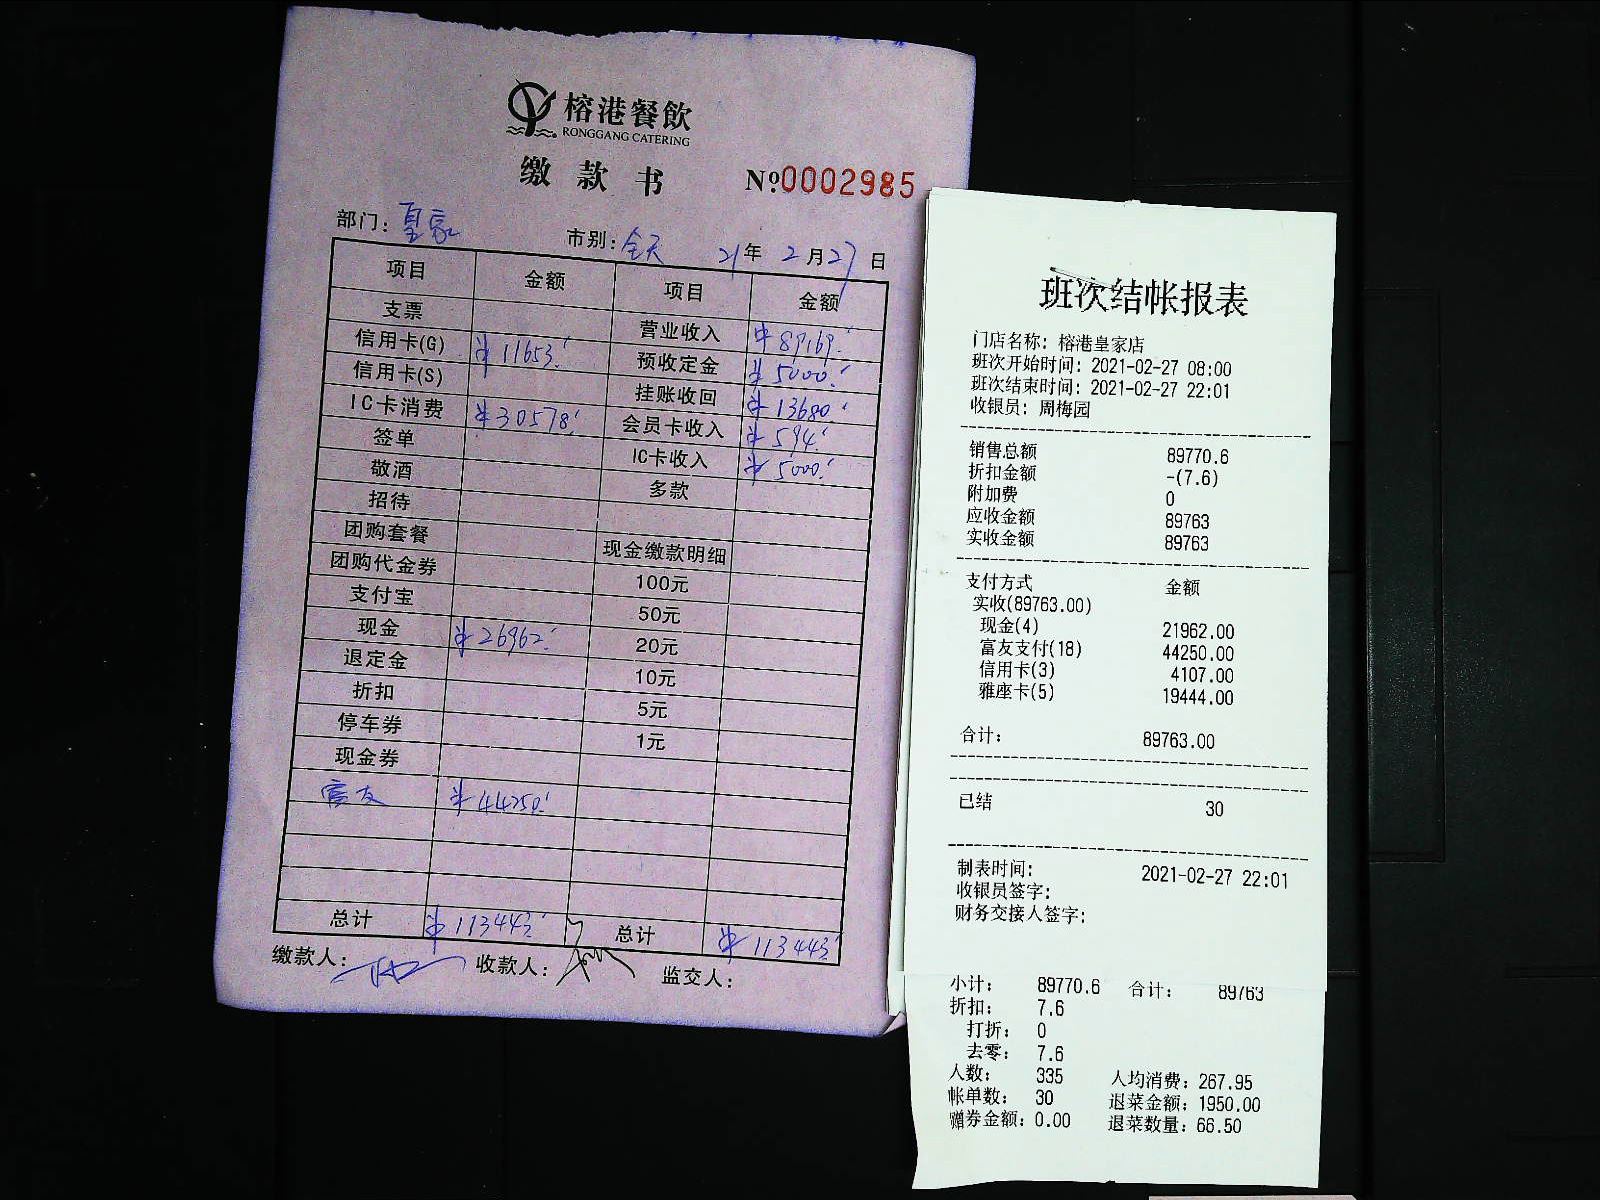 榕港餐飲
RONGGANG CATERING
缴款书 №0002985
部门：皇家 市别：全天 21年2月27日
项目 金额 项目 金额
支票 营业收入 ¥89169.
信用卡(G) ¥11653. 预收定金 ¥5000.
信用卡(S) 挂账收回 ¥13680.
IC卡消费 ¥30578. 会员卡收入 ¥594.
签单 IC卡收入 ¥5000.
敬酒 多款
招待
团购套餐 现金缴款明细
团购代金券 100元
支付宝 50元
现金 ¥26962. 20元
退定金 10元
折扣 5元
停车券 1元
现金券
富友 ¥44250.
总计 ¥113443. 总计 ¥113443.
缴款人： 收款人： 监交人：
班次结帐报表
门店名称：榕港皇家店
班次开始时间：2021-02-27 08:00
班次结束时间：2021-02-27 22:01
收银员：周梅园
销售总额 89770.6
折扣金额 -(7.6)
附加费 0
应收金额 89763
实收金额 89763
支付方式 金额
实收(89763.00)
现金(4) 21962.00
富友支付(18) 44250.00
信用卡(3) 4107.00
雅座卡(5) 19444.00
合计： 89763.00
已结 30
制表时间： 2021-02-27 22:01
收银员签字：
财务交接人签字：
小计： 89770.6 合计： 89763
折扣： 7.6
打折： 0
去零： 7.6
人数： 335 人均消费：267.95
帐单数： 30 退菜金额：1950.00
赠券金额：0.00 退菜数量：66.50